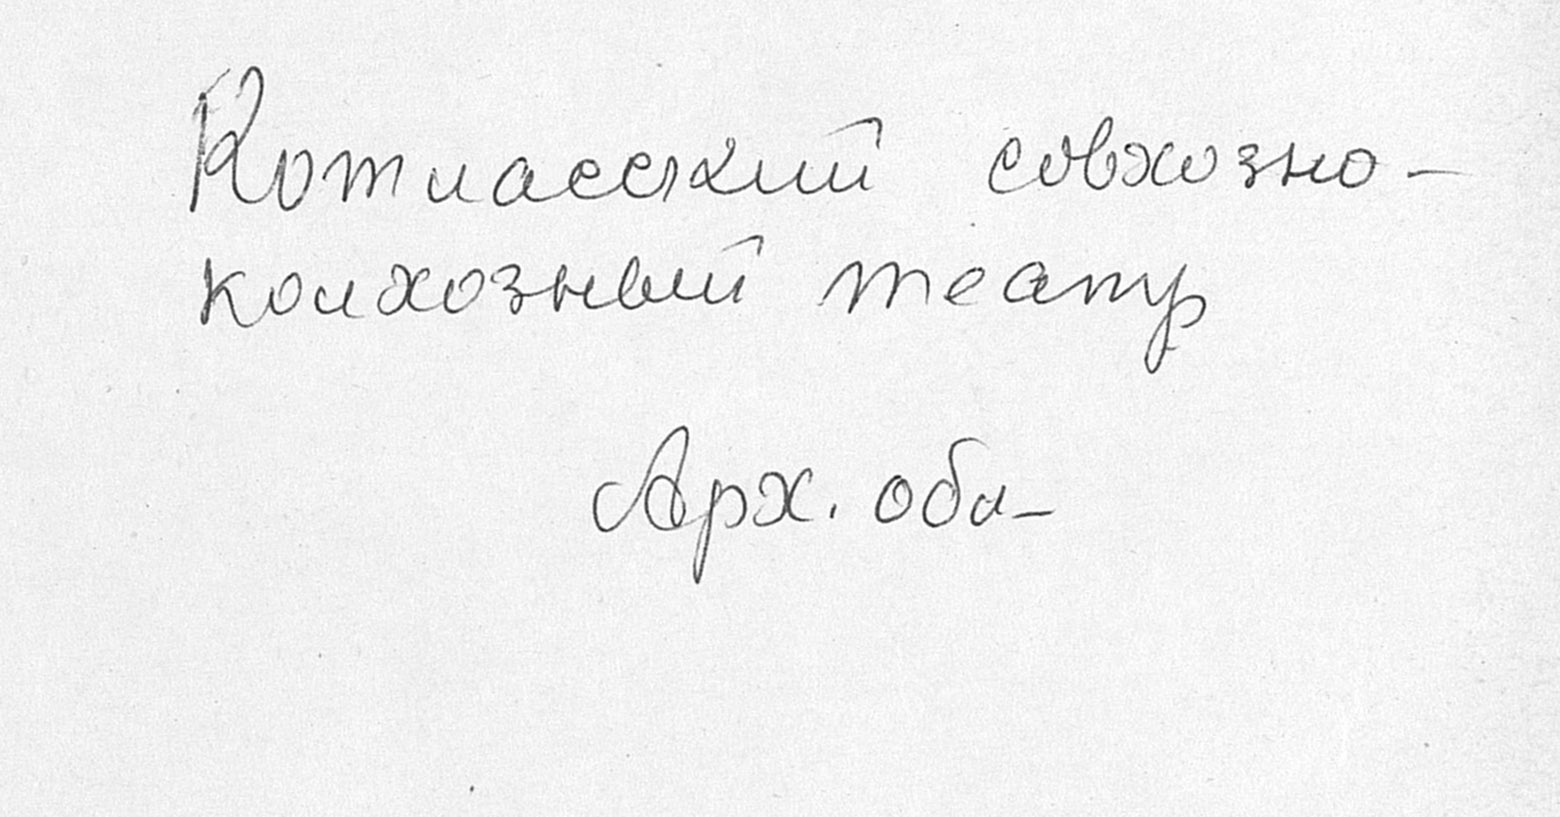 Котласский совхозно-
колхозный театр
Арх. обл-